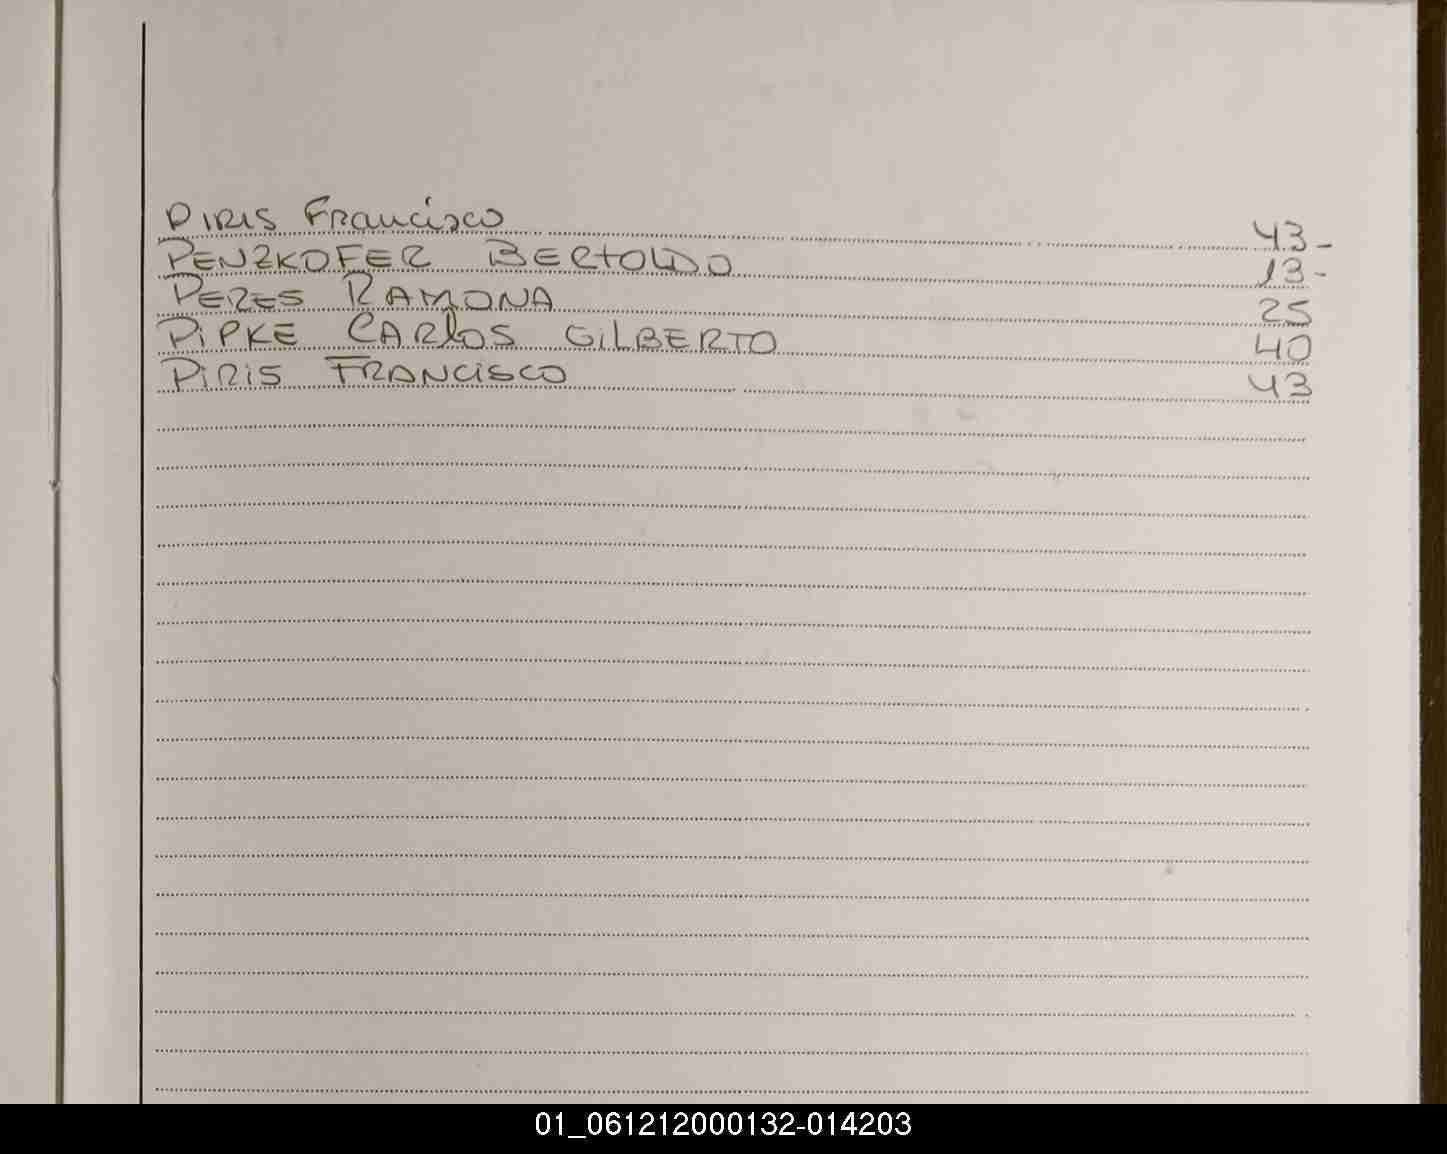 PIRIS Francisco 43-
PENZKOFER BERTOLDO 13-
PERES RAMONA 25
PiPKE CARlOS GilBERTO 40
PiRiS FRANCiSCO 43
01_061212000132-014203